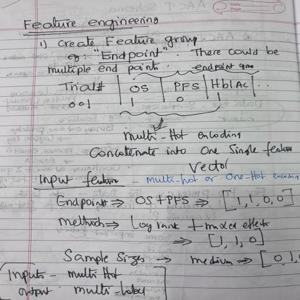 Feature engineering
1) Create Feature group
eg: "Endpoint" There could be
multiple end points. endpoint
Trial# OS PFS HbA1c
001 1 0 1
multi-Hot encoding
Concatenate into One Single feature
Vector
Input feature: multi-hot or One-Hot encoding
Endpoint ⇒ OS+PFS ⇒ [1, 1, 0, 0]
method ⇒ Log rank + mixed effects
⇒ [1, 1, 0]
Sample Sizes → medium → [0, 1,
Inputs - multi Hot
output multi-Label